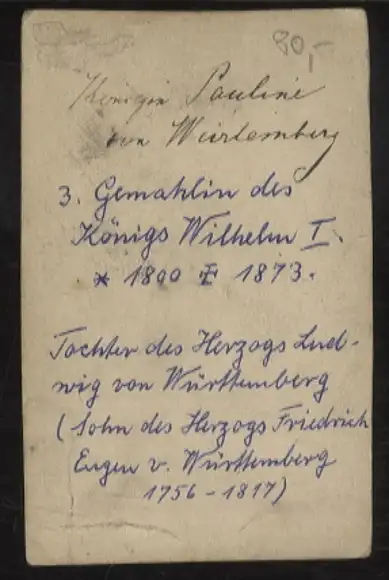 80,-
Königin Pauline
von Würtemberg
3. Gemahlin des
Königs Wilhelm I.
* 1800 ✝ 1873.
Tochter des Herzogs Lud-
wig von Württemberg
(Sohn des Herzogs Friedrich
Eugen v. Württemberg
1756-1817)